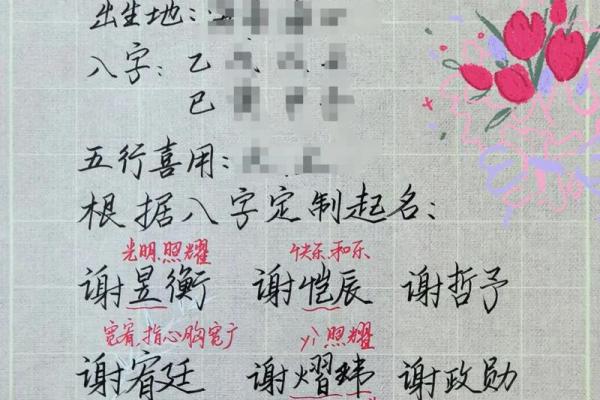 出生地：
八字：乙
巳
五行喜用：
根据八字定制起名：
光明、照耀 快乐、和乐
谢昱衡 谢恺辰 谢哲予
宽宥，指心胸宽广 yì 照耀
谢宥廷 谢熠玮 谢政勋